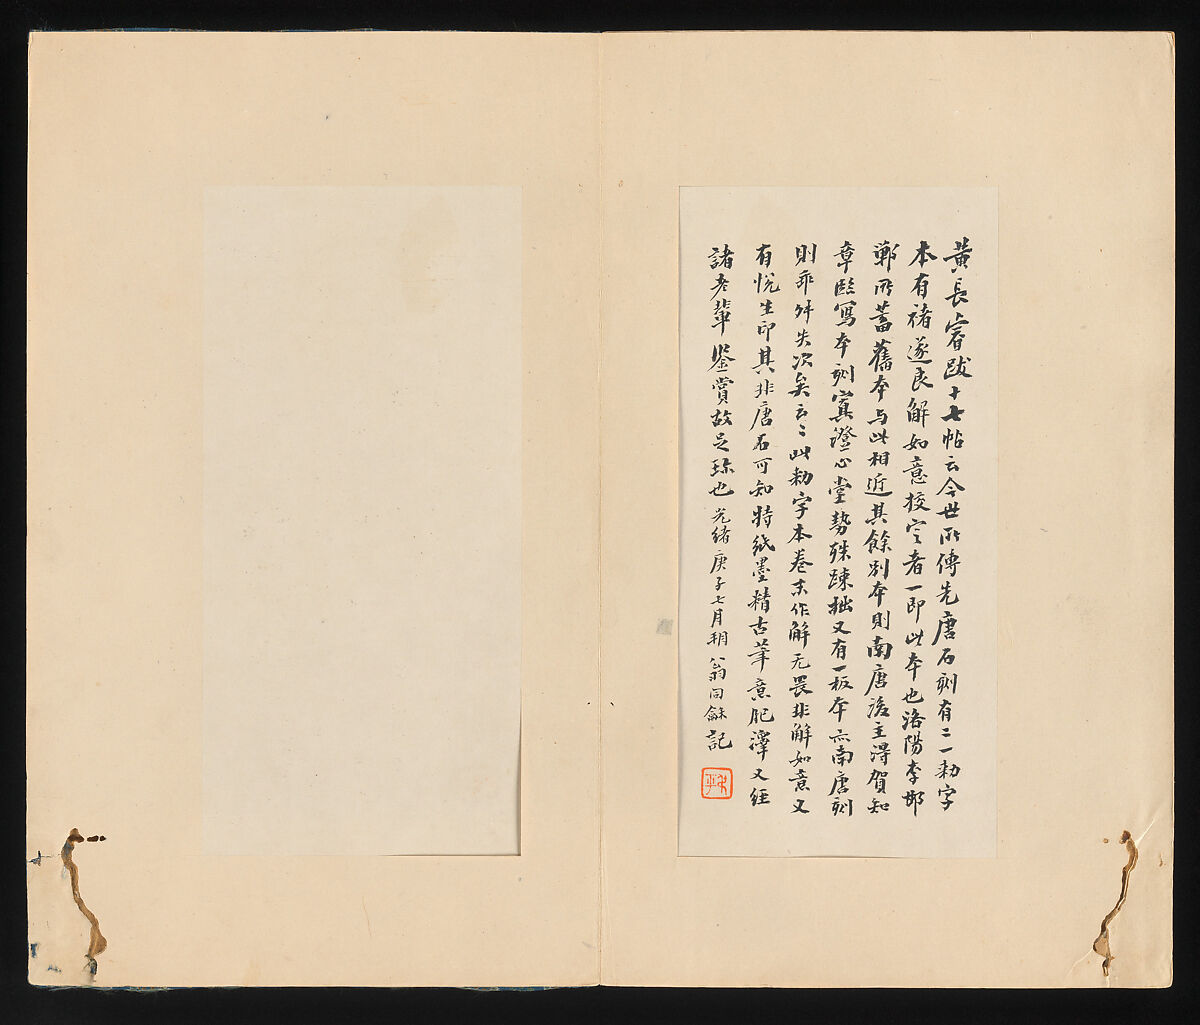 黃長睿跋十七帖云今世所傳先唐石刻有二一勅字
本有褚遂良解如意挍定者一即此本也洛陽李邯
鄲所蓄舊本与此相近其餘別本則南唐後主得賀知
章臨寫本刻寘澄心堂勢殊疎拙又有一板本亦南唐刻
則乖舛失次矣云〻此勅字本卷末作解无畏非解如意又
有悅生印其非唐石可知特紙墨精古筆意肥澤又經
諸老輩鑒賞故足珎也光緒庚子七月朔翁同龢記